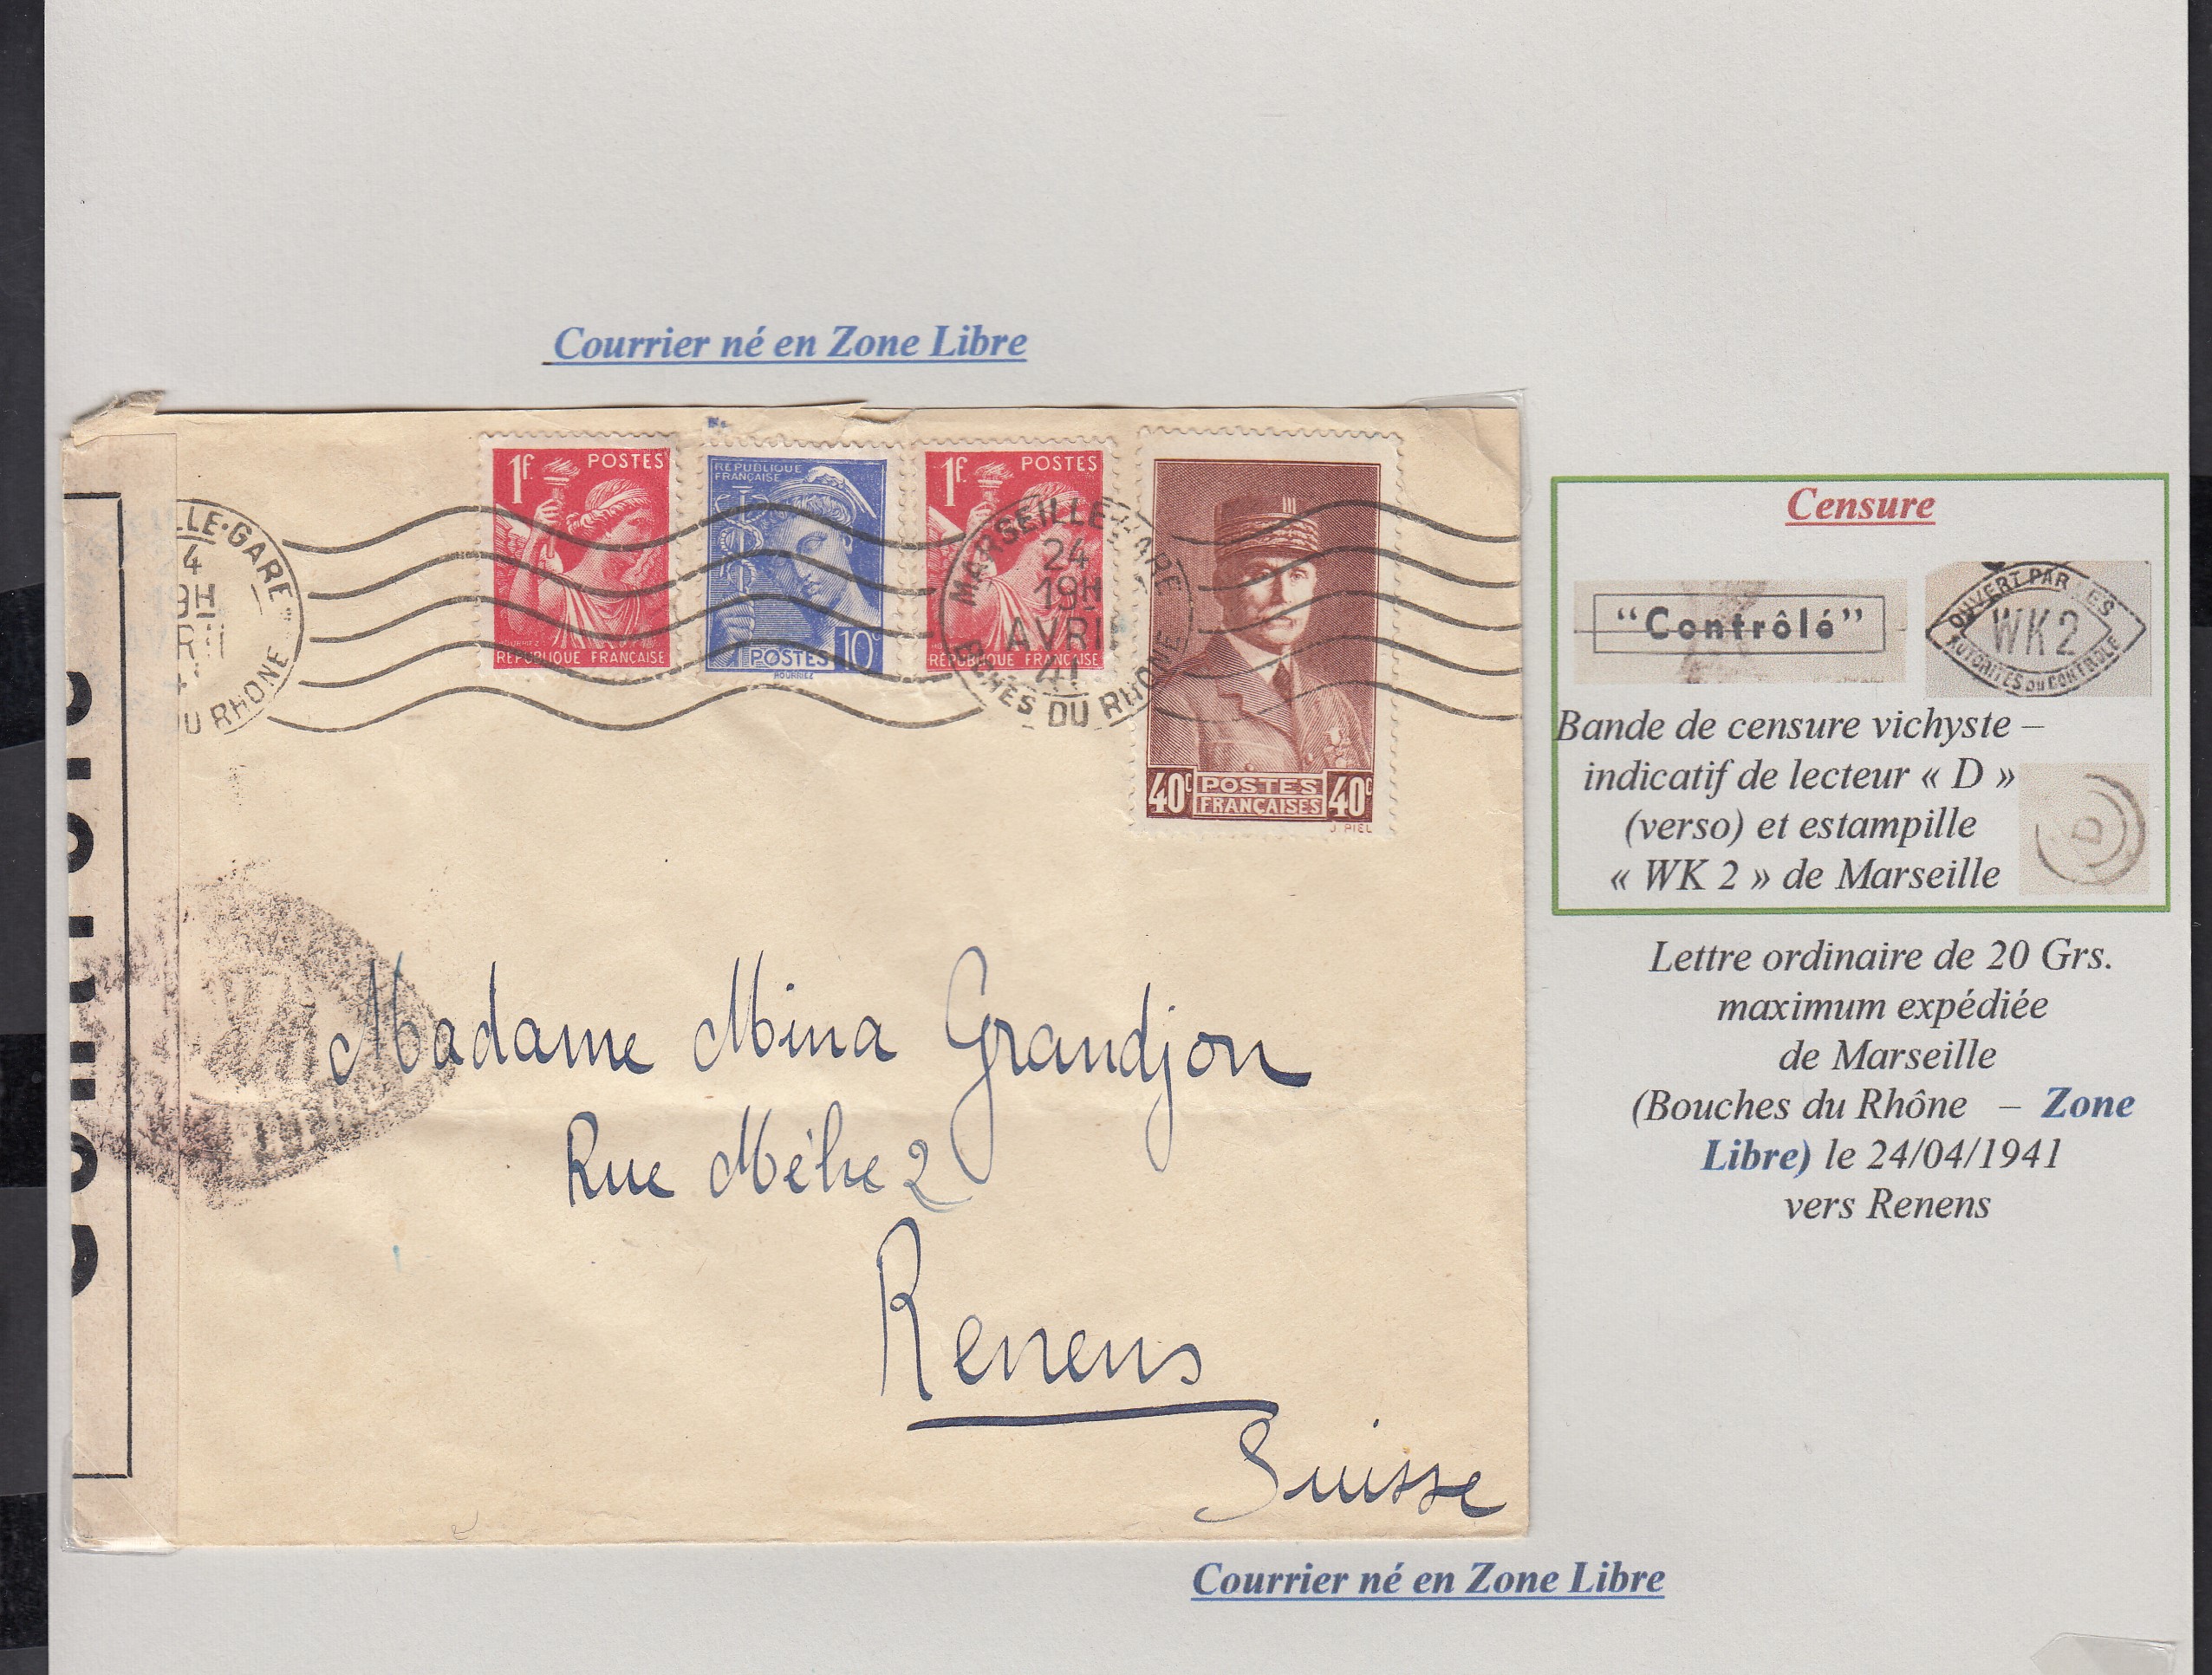 Courrier né en Zone Libre
1F. POSTES
RÉPUBLIQUE FRANÇAISE
REPUBLIQUE
FRANÇAISE
10c
POSTES
HOURRIEZ
1F. POSTES
RÉPUBLIQUE FRANÇAISE
40c POSTES 40c
FRANÇAISES
J. PIEL
LLE-GARE
4
9H
U RHONE
MARSEILLE-GARE
24
19H
AVRIL
41
BCHES DU RHONE
Madame Mina Grandjon
Rue 2
Renens
Suisse
Censure
"Contrôlé"
OUVERT PAR ES
WK2
AUTORITÉS DU CONTROLE
Bande de censure vichyste –
indicatif de lecteur « D »
(verso) et estampille
« WK 2 » de Marseille
D
Lettre ordinaire de 20 Grs.
maximum expédiée
de Marseille
(Bouches du Rhône – Zone
Libre) le 24/04/1941
vers Renens
Courrier né en Zone Libre